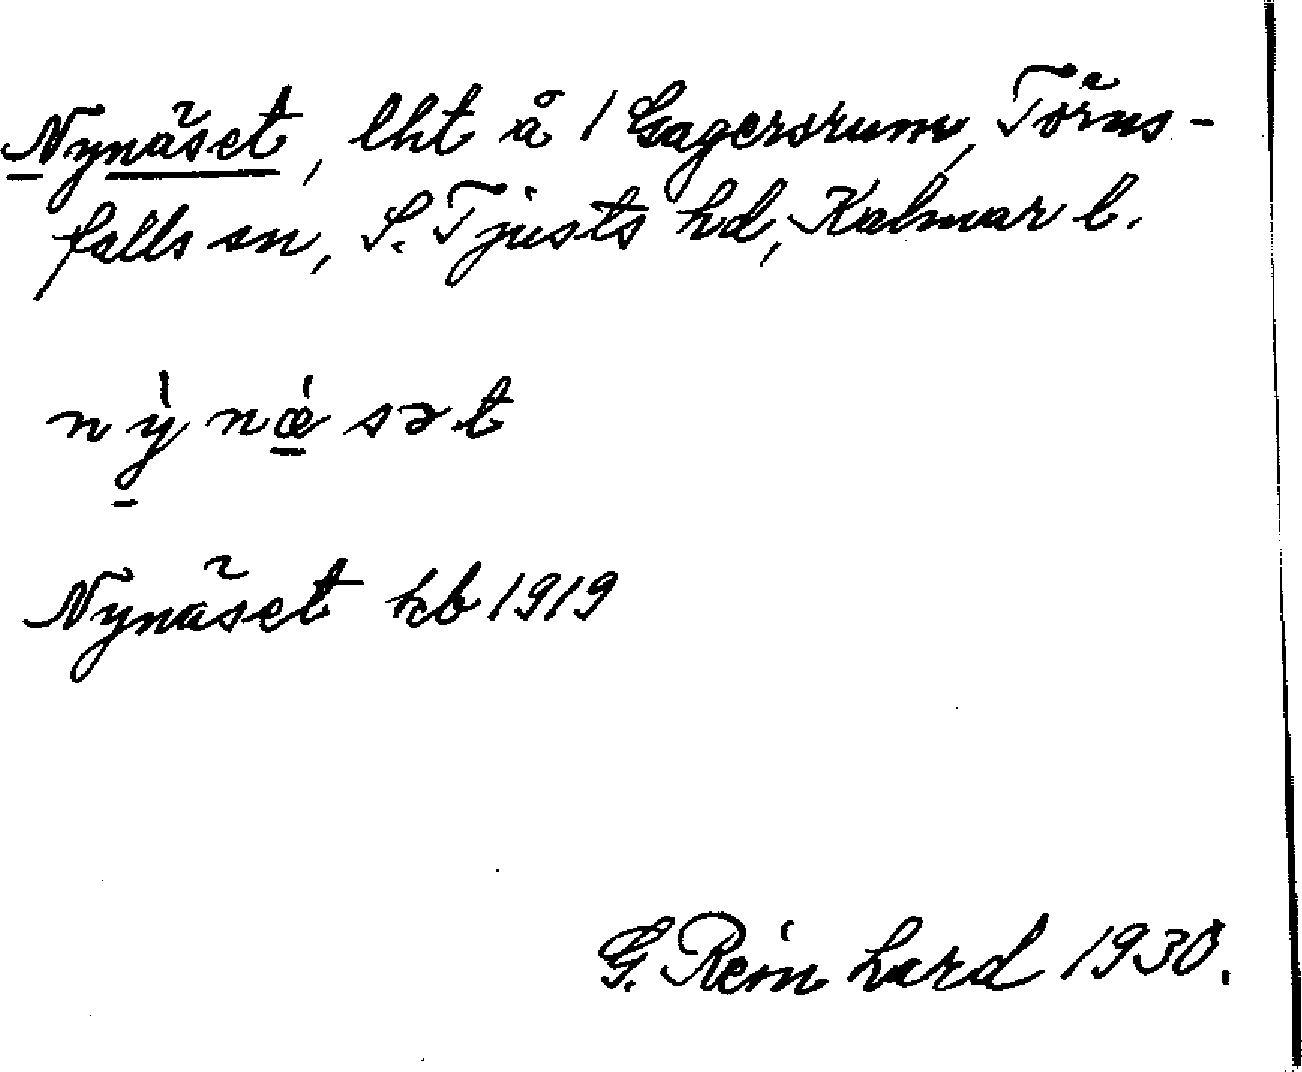 Nynäset, lht å 1 Gagersrum, Törns-
falls sn, S. Tjusts hd, Kalmar l.
nỳnǽsət
Nynäset kb 1919
G. Reinhard 1930.